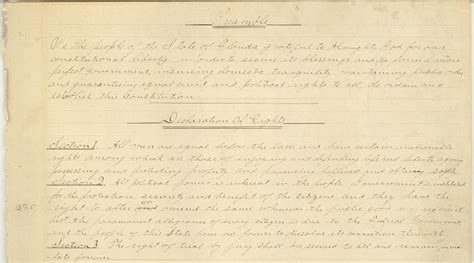 Preamble
We the people of the State of Florida, grateful to Almighty God for our
constitutional liberty, in order to secure its blessings and to form a more
perfect government, insuring domestic tranquility, maintaining public order
and guaranteeing equal civil and political rights to all, do ordain and
establish this Constitution.
Declaration Of Rights
Section 1. All men are equal before the law and have certain inalienable
rights among which are those of enjoying and defending life and liberty, acquiring
possessing and protecting property and pursuing happiness and obtaining safety.
Section 2. All political power is inherent in the people. Government is instituted
for the protection, security and benefit of the citizens and they have the
right to alter or amend the same whenever the public good may require it
but the paramount allegiance of every citizen is due to the Federal Government
and the people of this State have no power to dissolve its connection therewith
Section 3. The right of trial by jury shall be secured to all and remain invio-
late forever.